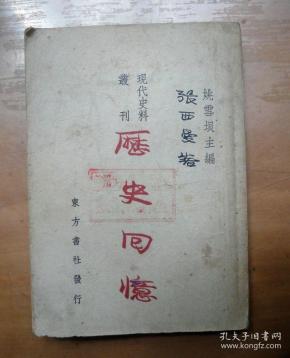 姚雪垠主編
張西曼著
現代史料
叢刊
歷史回憶
東方書社發行
孔夫子旧书网
kongfz.com